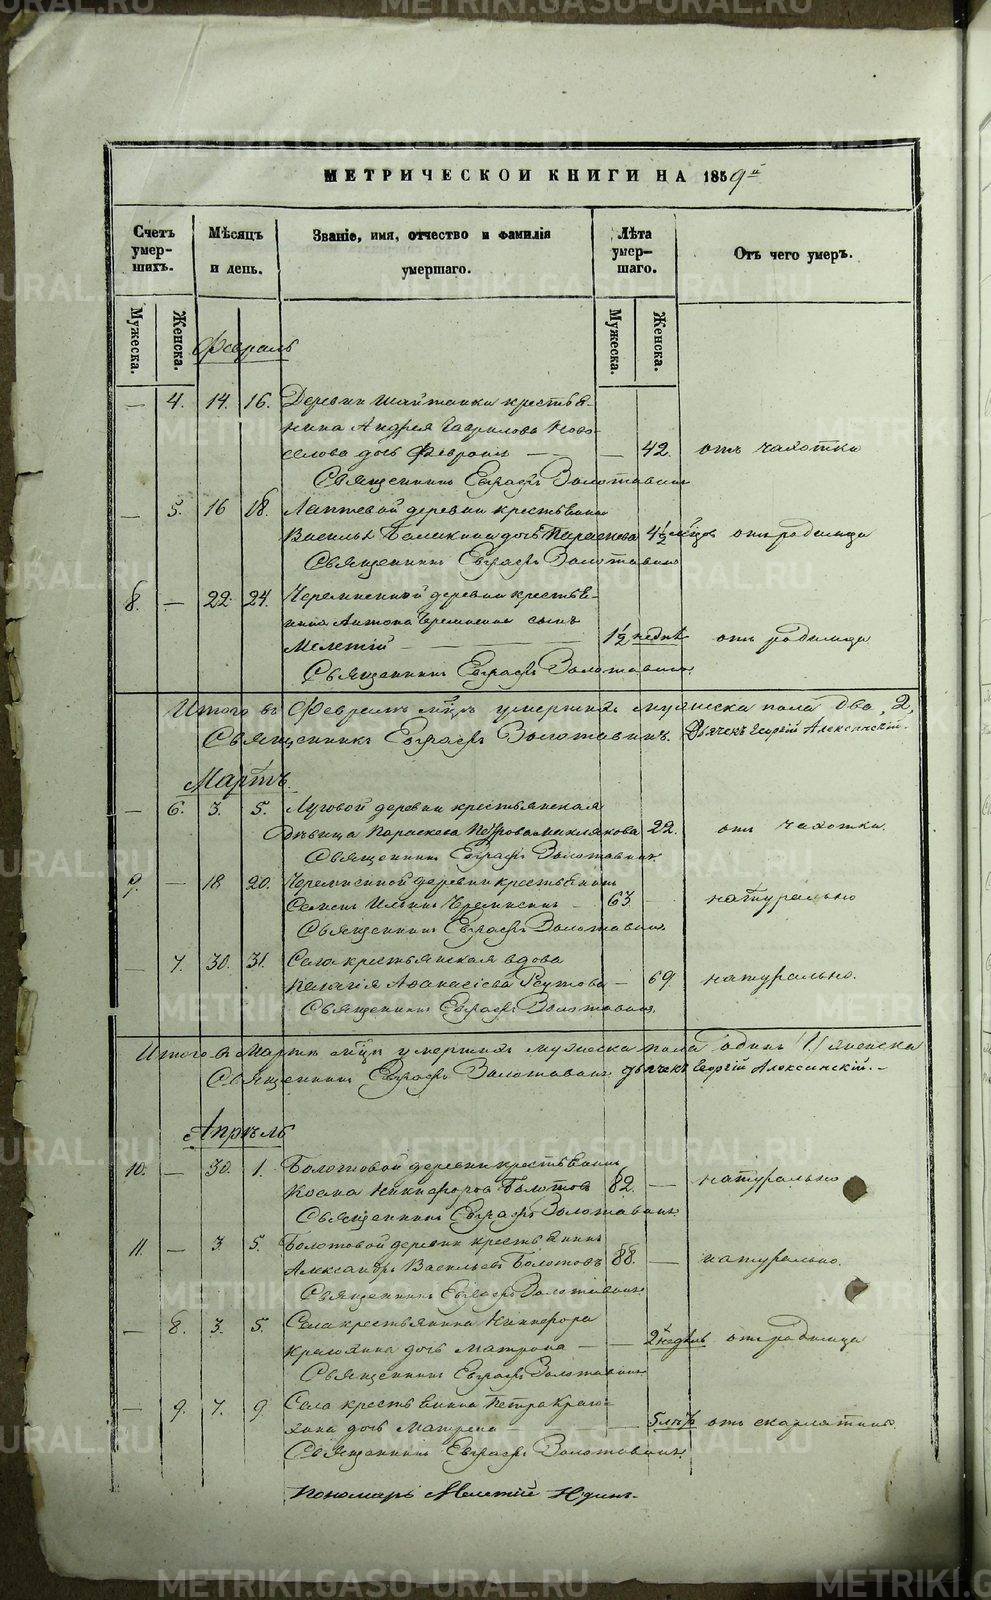 METRIKI.GASO-URAL.RU
МЕТРИЧЕСКОЙ КНИГИ НА 1859й
Счетъ умер- шихъ.
Мѣсяцъ и день.
Званіе, имя, отчество и фамилія умершаго.
Лѣта умер- шаго.
Отъ чего умеръ.
Мужеска.
Женска.
Мужеска.
Женска.
Февраль
— 4. 14. 16. Деревни Шайтанки крестья-
нина Андрея Гаврилова Ново-
селова дочь Феврония — — 42. отъ чахотки
Священникъ Евграфъ Золотавинъ
— 5. 16 18. Лаптевой деревни крестьянина
Василья дочь Параскева 4½ мѣсцов отъ родимца
Священникъ Евграфъ Золотавинъ
8. — 22 24. Черемисской деревни крестья-
нина Антона сынъ
Мелетій — 1½ недѣл отъ родимца
Священникъ Евграфъ Золотавинъ
Итого въ Февралѣ мѣцѣ умершихъ мужеска пола два, 2,
Священникъ Евграфъ Золотавинъ. Дьячекъ Георгій Алексинскій.
Мартъ.
— 6. 3. 5. Луговой деревни крестьянская
дѣвица Параскева Петрова 22. отъ чахотки.
Священникъ Евграфъ Золотавинъ
9. — 18 20. Черемисской деревни крестьянинъ
Семенъ Ильинъ Черемисинъ — 63 — натурально
Священникъ Евграфъ Золотавинъ
— 7. 30. 31. Села крестьянская вдова
Пелагія Аѳанасіева Реутова — 69. натурально.
Священникъ Евграфъ Золотавинъ
Итого въ Мартѣ мѣцѣ умершихъ мужеска пола одинъ /1./ женска
Священникъ Евграфъ Золотавинъ Дьячекъ Георгій Алексинскій. —
Апрѣль
10. — 30. 1. Болотовой деревни крестьянинъ
Никифоровъ Болотовъ 82. — натурально
Священникъ Евграфъ Золотавинъ
11. — 3. 5. Болотовой деревни крестьянинъ
Александръ Васильевъ Болотовъ 88. — натурально.
Священникъ Евграфъ Золотавинъ
— 8. 3. 5. Села крестьянина Никифора
дочь Матрона — — 2 недѣль отъ родимца
Священникъ Евграфъ Золотавинъ
— 9. 7. 9 Села крестьянина Петра
дочь — 5 лѣтъ отъ скарлатины
Священникъ Евграфъ Золотавинъ.
Пономарь Мелетій Юдинъ.